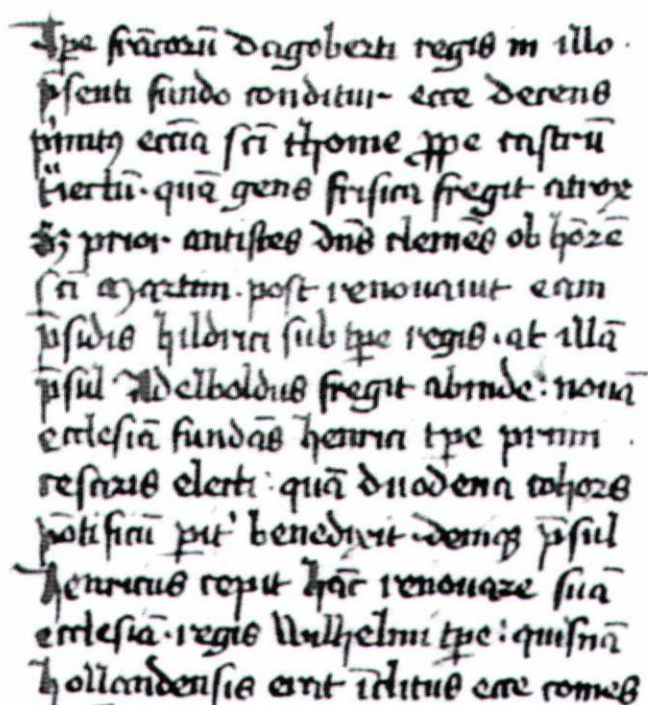 Tpe francorū Dagoberti regis in illo .
p̄senti fundo conditur ecce decens
p'mitꝰ ecc̄ia sc̄i thome ꝓpe castrū
t̄iectū . quā gens frisica fregit atrox
Sꝫ prior antistes dn̄s clemēs ob hōrē
sc̄i martini . post renouauit eam
p̄sidis hildrici sub tꝑe regis . at illā
p̄sul Adelboldus fregit abinde : nouā
ecclesiā fundās henrici tꝑe primi .
cesaris electi : quā duodena cohors
pōtificū ꝑit' benedixit . demꝰ p̄sul
henricus cepit hāc renouare suā
ecclesiā . regis Wilhelmi tꝑe : quisnā
hollandensis erat īclitus ecce comes